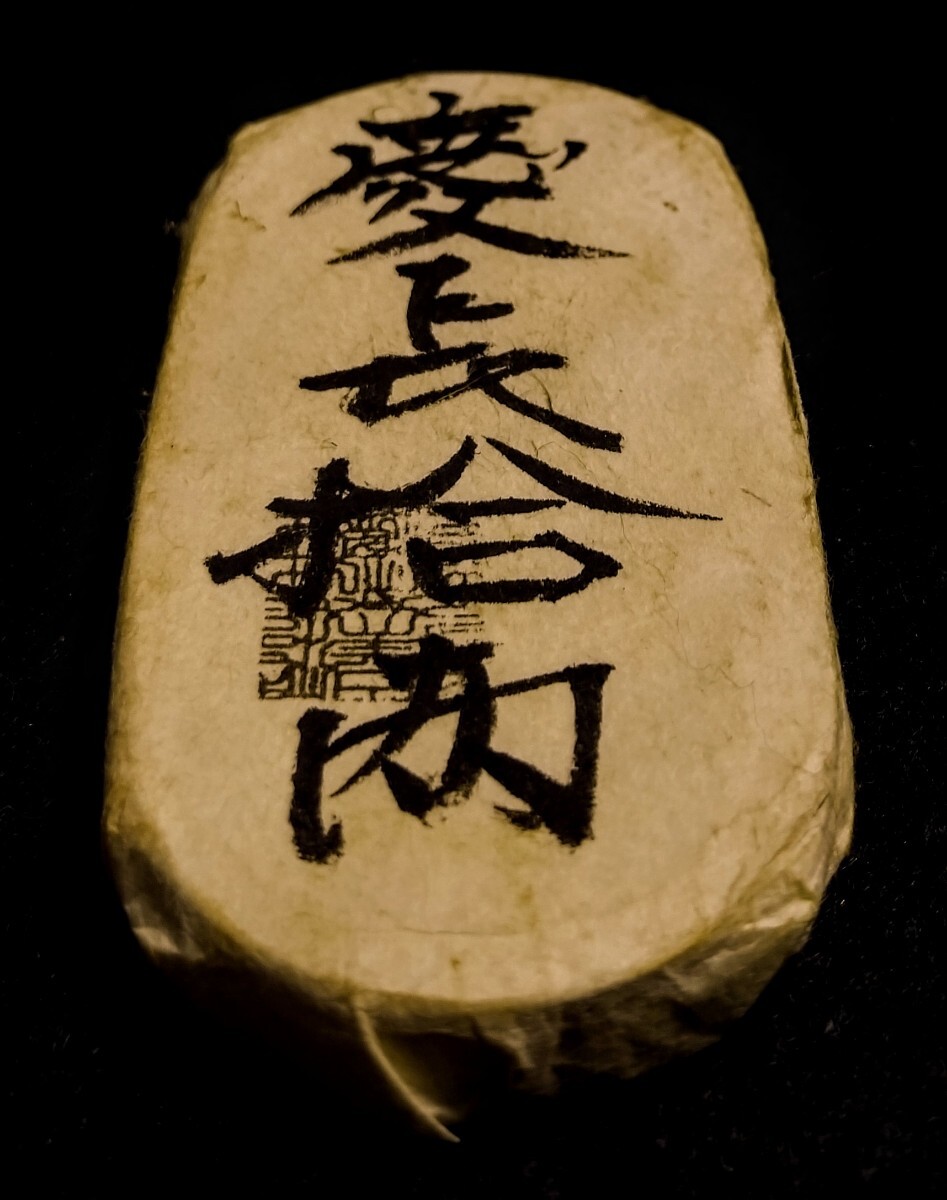 慶長拾両